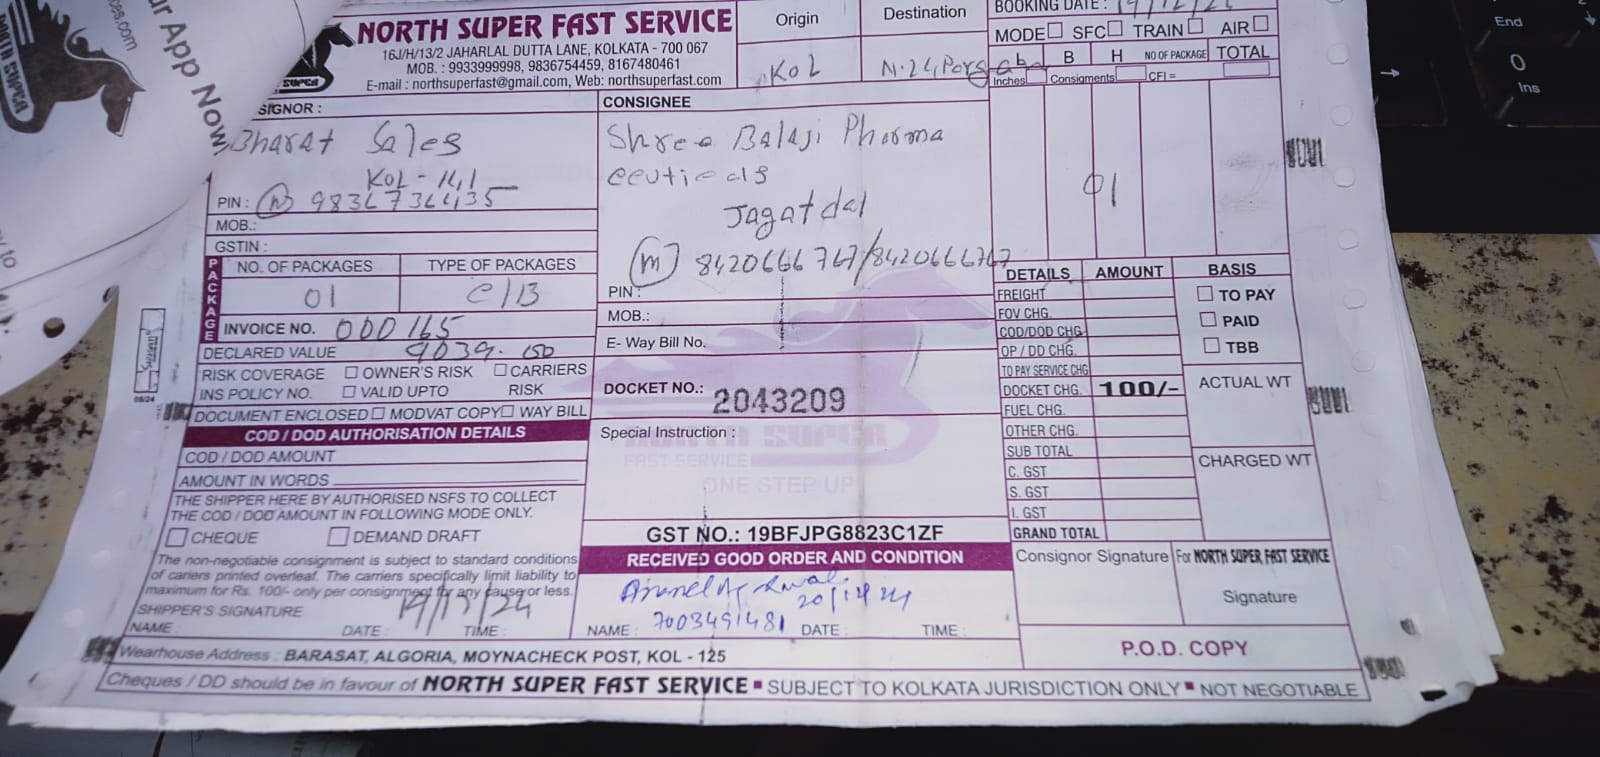 ur App Now
ces.com
NORTH SUPER FAST SERVICE
16J/H/13/2 JAHARLAL DUTTA LANE, KOLKATA - 700 067
MOB. : 9933999998, 9836754459, 8167480461
E-mail : northsuperfast@gmail.com, Web: northsuperfast.com
Origin
KOL
Destination
N.24, Porgaba
BOOKING DATE :
MODE SFC TRAIN AIR
L B H NO OF PACKAGE TOTAL
Inches Consigments CFI =
01
SIGNOR :
Bharat Sales
KOL-
PIN : (M)
MOB.:
GSTIN :
PACKAGE
NO. OF PACKAGES TYPE OF PACKAGES
01 C/B
INVOICE NO. 000165
DECLARED VALUE 9039.
RISK COVERAGE OWNER'S RISK CARRIERS RISK
INS POLICY NO. VALID UPTO
DOCUMENT ENCLOSED MODVAT COPY WAY BILL
COD / DOD AUTHORISATION DETAILS
COD / DOD AMOUNT
AMOUNT IN WORDS
THE SHIPPER HERE BY AUTHORISED NSFS TO COLLECT
THE COD / DOD AMOUNT IN FOLLOWING MODE ONLY.
CHEQUE DEMAND DRAFT
The non-negotiable consignment is subject to standard conditions
of cariers printed overleaf. The carriers specifically limit liability to
maximum for Rs. 100/- only per consignment for any cause or less.
SHIPPER'S SIGNATURE 19/12/24
NAME : DATE : TIME :
CONSIGNEE
Shree Balaji Pharma
ceuticals
Jagatdal
(M) 8420666767/8420666767
PIN :
MOB.:
E- Way Bill No.
DOCKET NO.: 2043209
Special Instruction :
NORTH SUPER
FAST SERVICE
ONE STEP UP
GST NO.: 19BFJPG8823C1ZF
RECEIVED GOOD ORDER AND CONDITION
20/12/24
7003491481
NAME : DATE : TIME :
DETAILS AMOUNT BASIS
FREIGHT
FOV CHG.
COD/DOD CHG
OP / DD CHG.
TO PAY SERVICE CHG
DOCKET CHG. 100/-
FUEL CHG.
OTHER CHG.
SUB TOTAL
C. GST
S. GST
I. GST
GRAND TOTAL
TO PAY
PAID
TBB
ACTUAL WT
CHARGED WT
Consignor Signature
For NORTH SUPER FAST SERVICE
Signature
P.O.D. COPY
Wearhouse Address : BARASAT, ALGORIA, MOYNACHECK POST, KOL - 125
Cheques / DD should be in favour of NORTH SUPER FAST SERVICE ■ SUBJECT TO KOLKATA JURISDICTION ONLY ■ NOT NEGOTIABLE
End
0
Ins